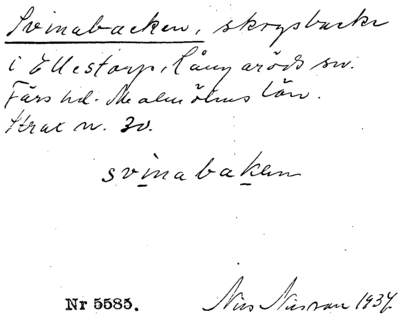 Svinabacken, skogsbacke
i Ellestorp, Långaröds sn.
Färs hd. Malmöhus län.
Strax n. 30.
svinabaken
Nr 5585.
Nils Nilsson 1934.